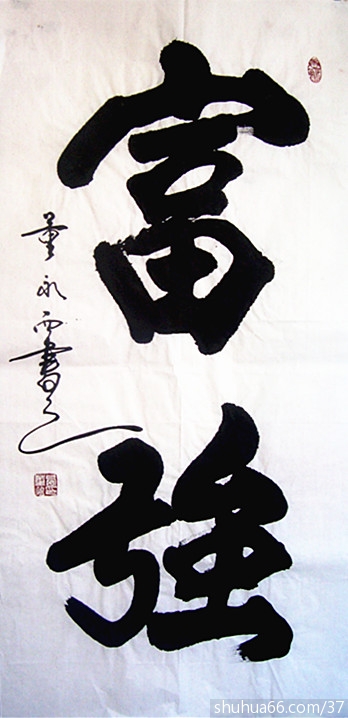 富
強
董永西書
shuhua66.com/37